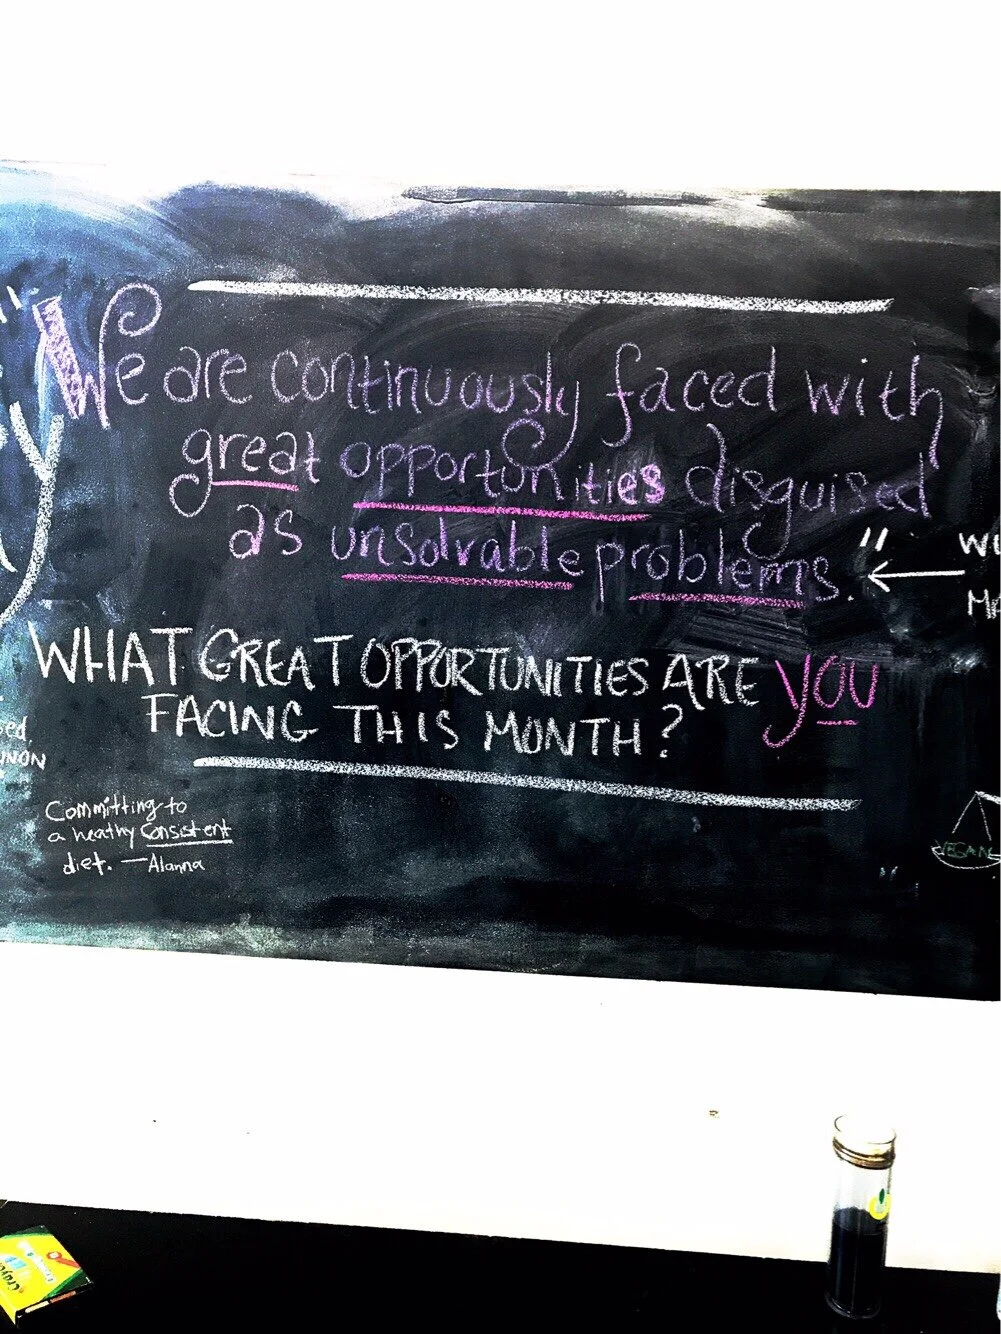 We are continuously faced with
great opportunities disguised
as unsolvable problems."
WHAT GREAT OPPORTUNITIES ARE you
FACING THIS MONTH?
Committing to
a heathy consistent
diet. — Alanna
VEGAN
Crayola